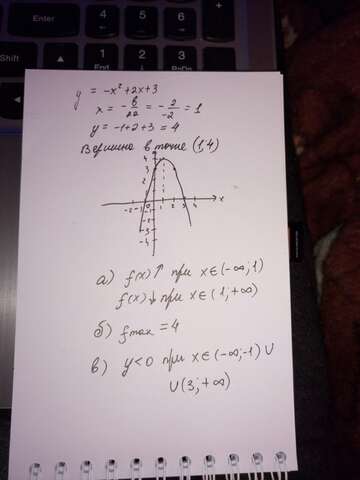 Enter
1
2
3
Shift
End
PgDn
y = -x² + 2x + 3
x = - b/2a = - 2/-2 = 1
y = -1 + 2 + 3 = 4
Вершина в точке (1,4)
4
3
2
-2 -1 0 1 2 3 4 x
-2
-3
-4
а) f(x)↑ при x∈(-∞;1)
f(x)↓ при x∈(1;+∞)
б) fmax = 4
в) y<0 при x∈(-∞;-1)∪
∪(3;+∞)